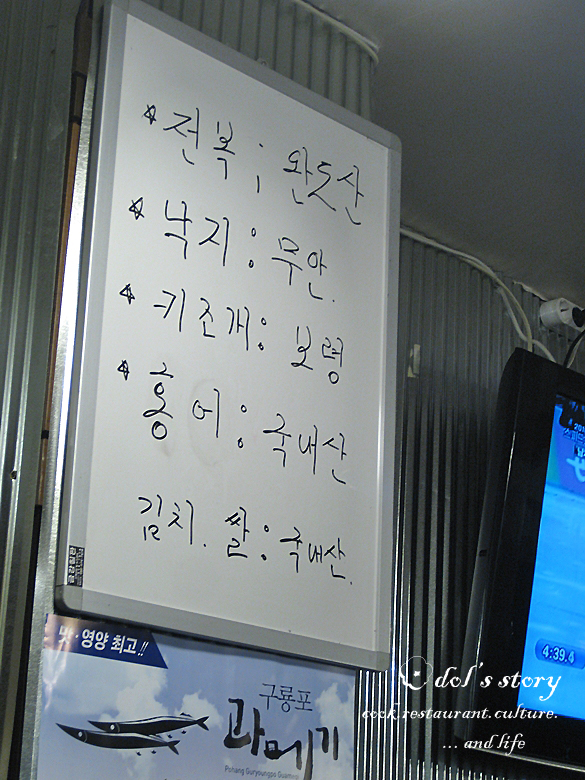 * 전복 ; 완도산
* 낙지 : 무안.
* 키조개 : 보령
* 홍어 : 국내산
김치. 쌀 : 국내산.
맛·영양 최고!!
구룡포
과메기
Pohang Guryongpo Guamegi
4:39.4
dol's story
cook.restaurant.culture.
... and life